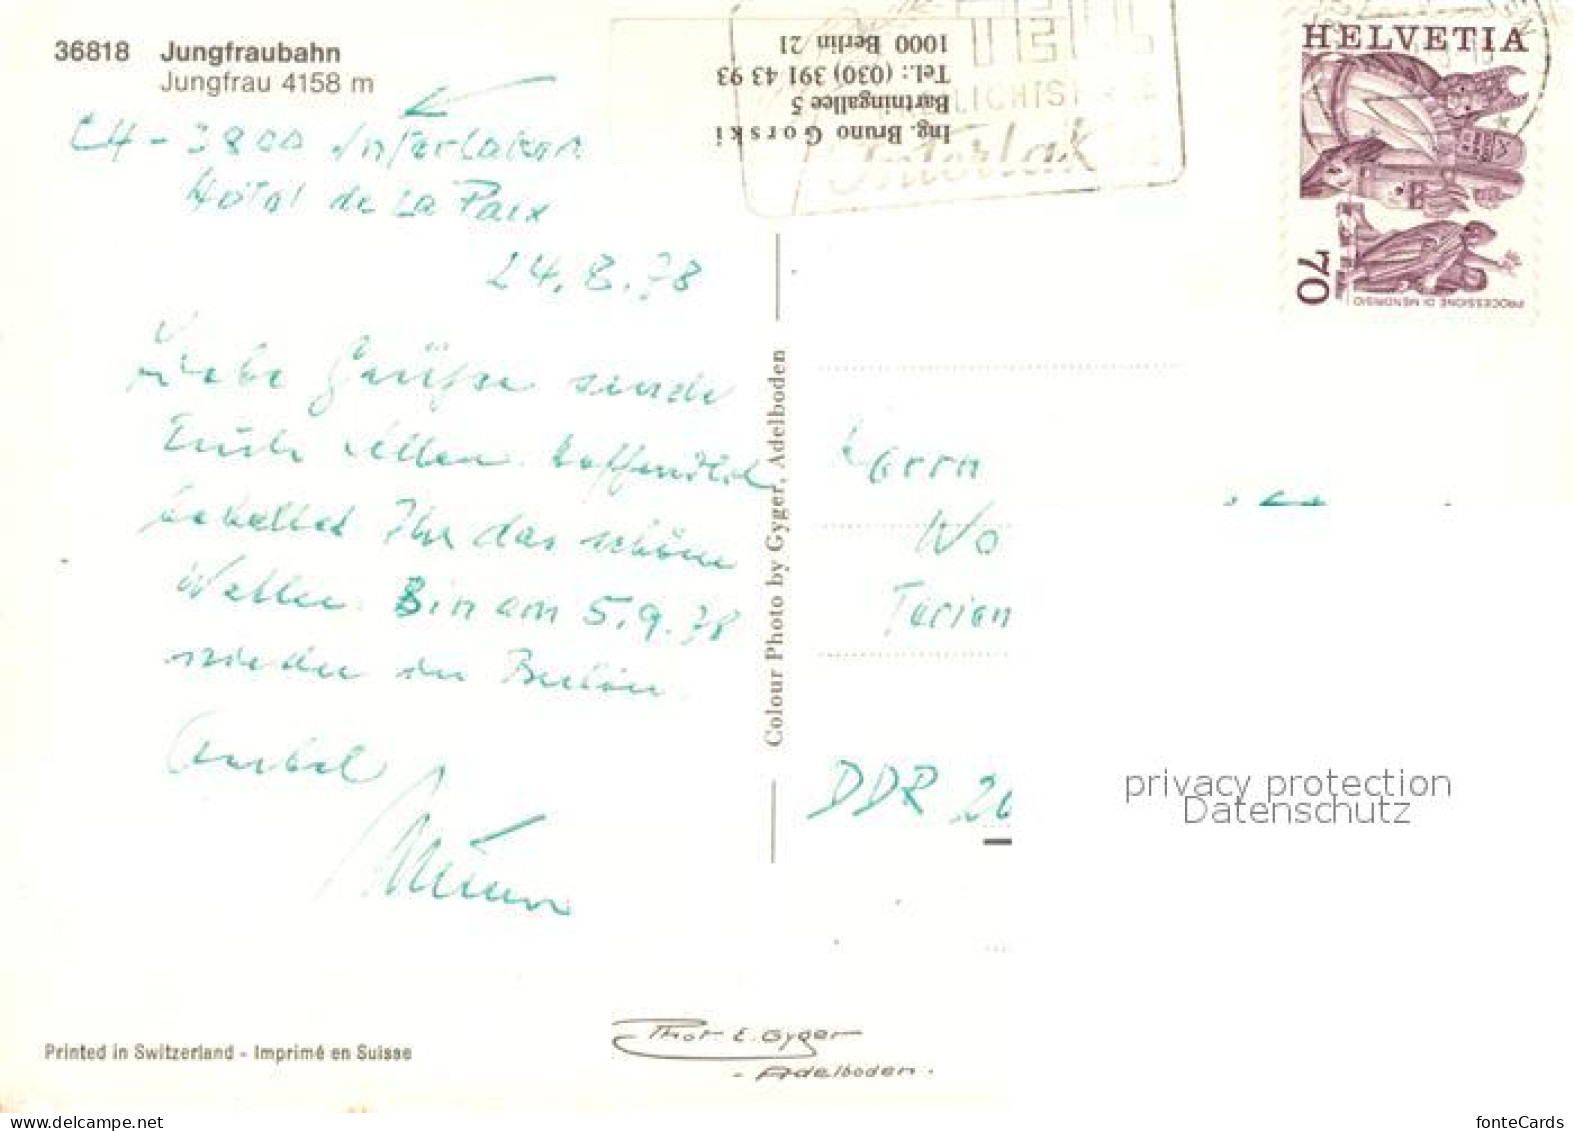 36818 Jungfraubahn
Jungfrau 4158 m
CH-3800 Interlaken
Hotel de La Paix
24.8.78
Liebe Grüsse sende
Euch Allen. Hoffentlich
behaltet Ihr das schöne
Wetter. Bin am 5.9.78
wieder in Berlin.
Onkel
Printed in Switzerland - Imprimé en Suisse
Ing. Bruno Gorski
Bartningallee 5
Tel.: (030) 391 43 93
1000 Berlin 21
TELL
LICHTSP
Interlak
HELVETIA
70
PROCESSIONE DI MENDRISIO
Colour Photo by Gyger, Adelboden
Herrn
Wo
DDR 20
Phot E. Gyger
- Adelboden.
privacy protection
Datenschutz
www.delcampe.net
fonteCards